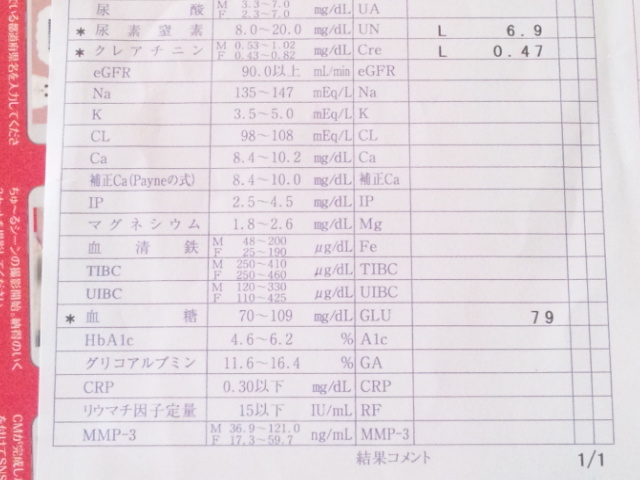 尿酸 M 3.3~7.0 F 2.3~7.0 mg/dL UA
* 尿素窒素 8.0~20.0 mg/dL UN L 6.9
* クレアチニン M 0.53~1.02 F 0.43~0.82 mg/dL Cre L 0.47
eGFR 90.0以上 mL/min eGFR
Na 135~147 mEq/L Na
K 3.5~5.0 mEq/L K
CL 98~108 mEq/L CL
Ca 8.4~10.2 mg/dL Ca
補正Ca(Payneの式) 8.4~10.0 mg/dL 補正Ca
IP 2.5~4.5 mg/dL IP
マグネシウム 1.8~2.6 mg/dL Mg
血清鉄 M 48~200 F 25~190 μg/dL Fe
TIBC M 250~410 F 250~460 μg/dL TIBC
UIBC M 120~330 F 110~425 μg/dL UIBC
* 血糖 70~109 mg/dL GLU 79
HbA1c 4.6~6.2 % A1c
グリコアルブミン 11.6~16.4 % GA
CRP 0.30以下 mg/dL CRP
リウマチ因子定量 15以下 IU/mL RF
MMP-3 M 36.9~121.0 F 17.3~59.7 ng/mL MMP-3
結果コメント 1/1
ている都道府県名を入力してくださ
ちゅ~るシーンの撮影開始。納得のいく
CMが完成し